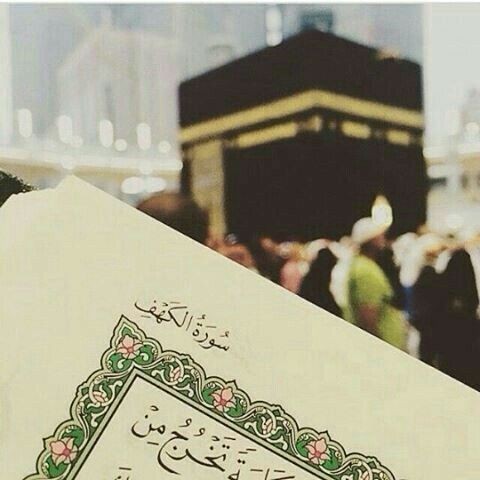 سُورَةُ الكَهْفِ
تَخْرُجُ مِنْ